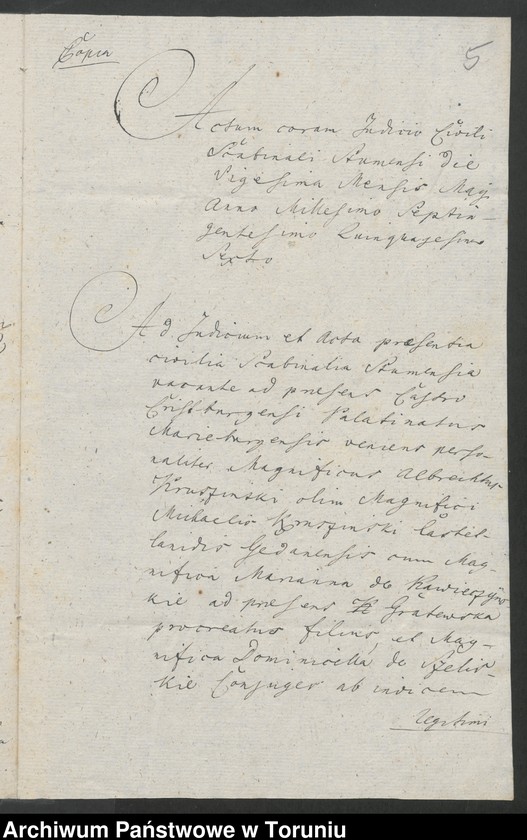 Copia
5
Actum coram Judicio Civili
Scabinali Stumensi die
Vigesima Mensis Maj
Anno Millesimo Septin-
gentesimo Quinquagesimo
Sexto
Ad Judicium et Acta præsentia
civilia Scabinalia Stumensia
vacante ad præsens Castro
Cristburgensi Palatinatus
Marieburgensis veniens perso-
naliter Magnificus Albrechtus
Kruszinski olim Magnifici
Michaelis Kruszinski Castel-
lanidis Gedanensis cum Mag-
nifica Marianna de
kie ad præsens Grabewska
procreatus filius, et Mag-
nifica Dominicella de
kie Conjuges ab invicem
legitimi
Archiwum Państwowe w Toruniu